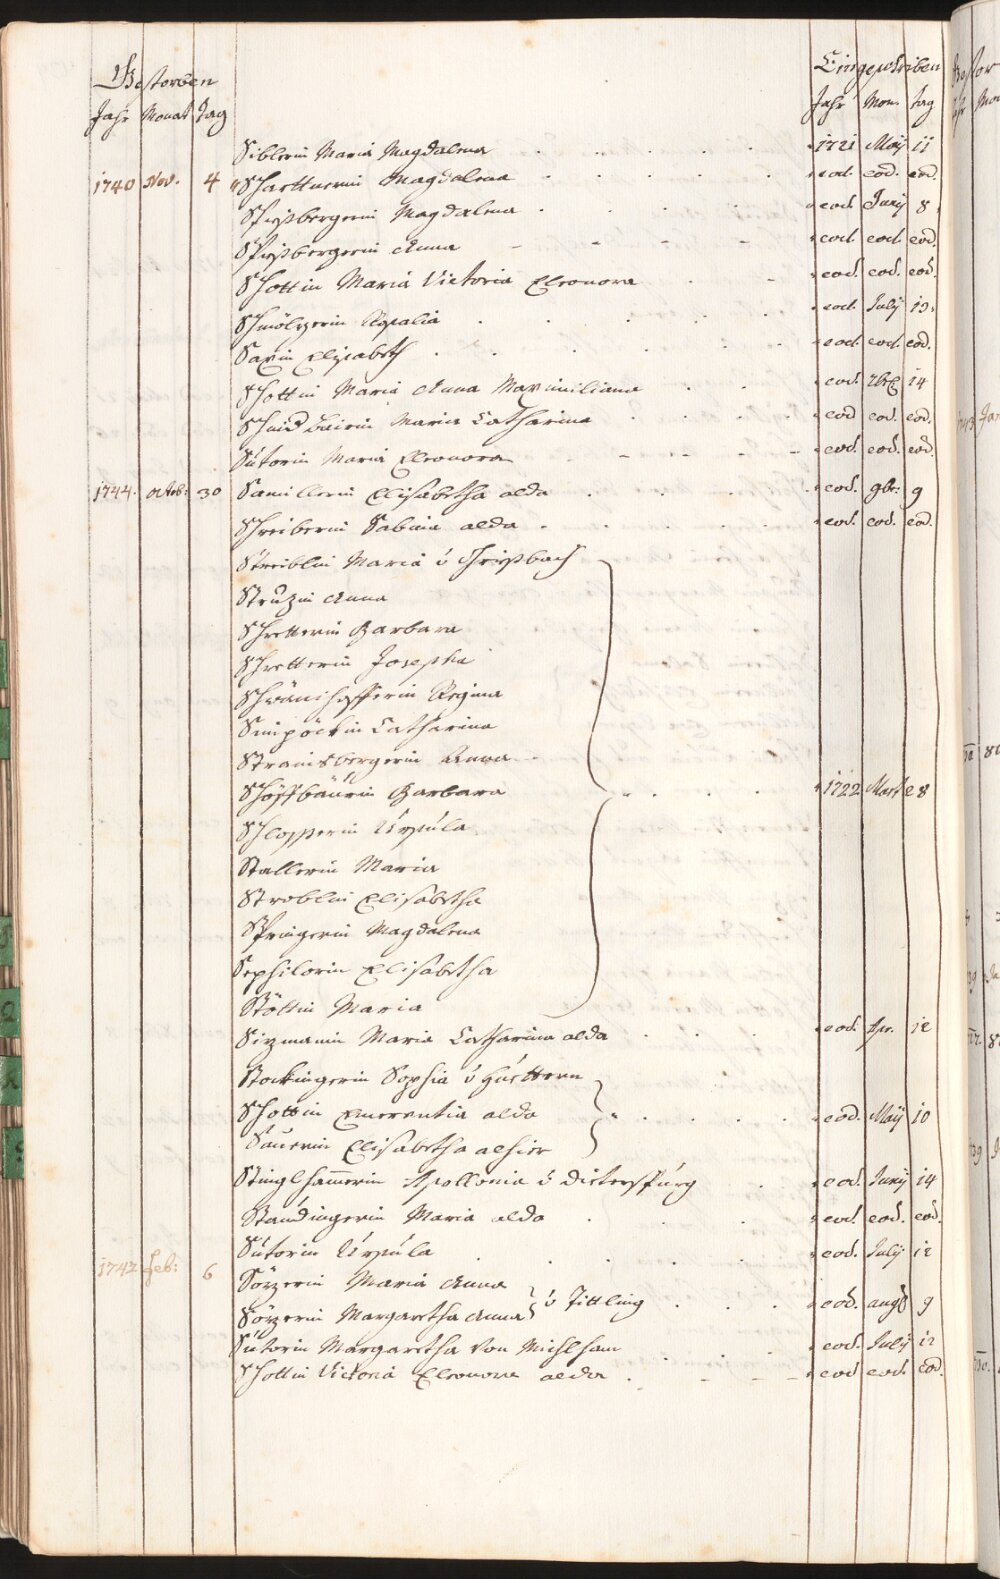 Gestorben Eingeschriben
Jahr Monat Tag Jahr Mon. tag
Siblerin Maria Magdalena 1721 Maÿ 11
1740 Nov. 4 Schaettnerin Magdalena eod. eod. eod.
Spissbergerin Magdalena eod. Junÿ 8
Spissbergerin Anna eod. eod. eod.
Schottin Maria Victoria Eleonora eod. eod. eod.
Schmölzerin Rosalia eod. Julÿ 13.
Saxin Elisabeth eod. eod. eod.
Schottin Maria Anna Maximiliana eod. 14
Maria Catharina eod eod. eod.
Sutorin Maria Eleonora eod. eod. eod.
1744. octob: 30 Samillerin Elisabetha alda eod. 9br: 9
Schreiberin Sabina alda eod. eod. eod.
Streiblin Maria v Griessbach
Anna
Schretterin Barbara
Schretterin Josepha
Regina
Simpöckin Catharina
Strainsbergerin Anna
Schöffbäurin Barbara 1722 Mart 28
Schlosserin Ursula
Stallerin Maria
Stroblin Elisabetha
Springerin Magdalena
Sephilorin Elisabetha
Stöttin Maria
Sizmanin Maria Catharina alda eod. Apr. 12
Stockingerin Sophia v Hüettern
Schottin Emerentia alda eod. Maÿ 10
Saurin Elisabetha alhier
Stinglhamerin Apollonia v dietersspurg eod. Junÿ 14
Staudingerin Maria alda eod. eod. eod.
Sutorin Ursula eod. Julÿ 12
1742 Feb: 6 Sözerin Maria Anna
Sözerin Margaretha Anna v Tittling eod. aug 9
Sutorin Margaretha von Michlham eod. Julÿ 12
Schottin Victoria Eleonora alda eod eod. eod.